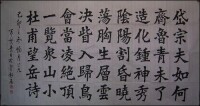 岱宗夫如何
齊魯青未了
造化鍾神秀
陰陽割昏曉
蕩胸生層雲
決眥入歸鳥
會當凌絕頂
一覽衆山小
杜甫望岳詩